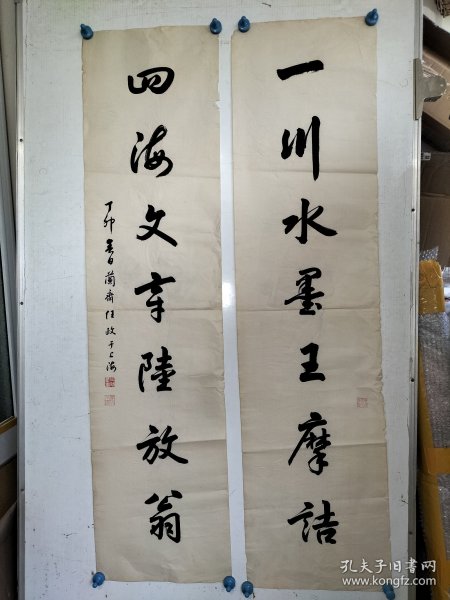 一川水墨王摩詰
四海文章陸放翁
丁卯春日蘭齋任政于上海
孔夫子旧书网
www.kongfz.com